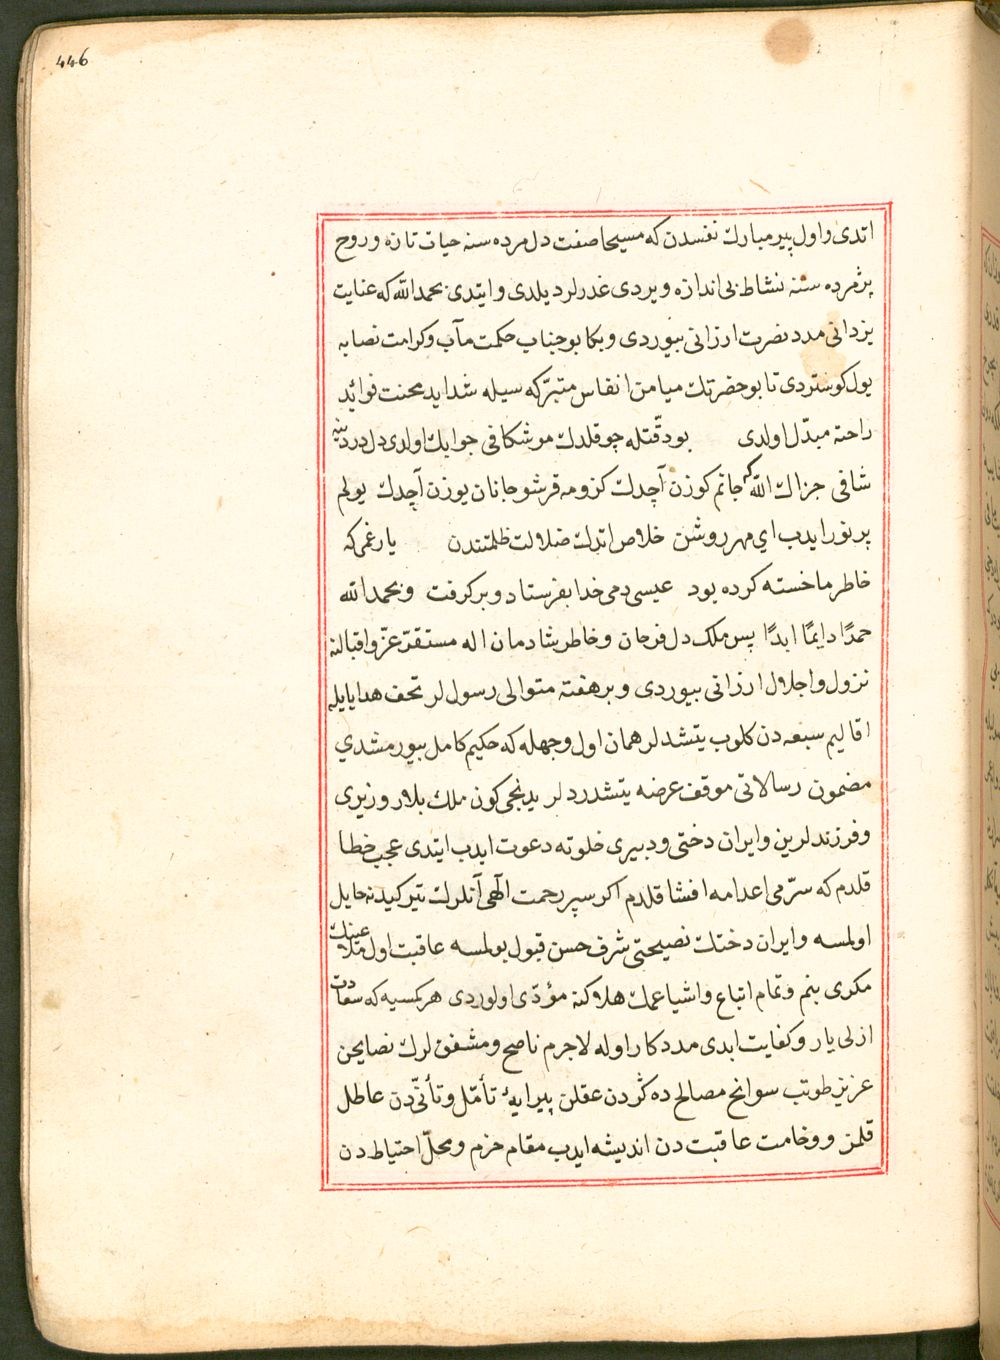 446
اتدی واول پیر مبارك نفسدن که مسیحا صفت دل مرده سنه حیات تازه وروح
پژمرده سنه نشاط بی اندازه ویردی عذرلر دیلدی وایتدی بحمد الله که عنایت
یزدانی مدد نصرت ارزانی بیوردی وبکا بو جناب حکمت مآب وکرامت نصابه
یول کوستردی تا بو حضرتك میامن انفاس متبرّکه سیله شداید محنت فوائد
راحته مبدّل اولدی بو دقّتله چو قلدك موشکافی جوابك اولدی دل دردینه
شافی جزاك الله که جانم کوزن آچدك کزومه قرشو جانان یوزن آچدك یولم
پر نور ایدب ای مهر روشن خلاص اتدك ضلالت ظلمتندن یا رغمی که
خاطر ما خسته کرده بود عیسی دمی خدا بفرستاد وبرکرفت وبحمد الله
حمدًا دایمًا ابدًا پس ملك دل فرحان وخاطر شادمان اله مستقرّ عزّ واقبالنه
نزول واجلال ارزانی بیوردی وبر هفته متوالی رسول لر تحف هدایایله
اقالیم سبعه دن کلوب یتشدلر همان اول وجهله که حکیم کامل بیورمشدی
مضمون رسالاتی موقف عرضه یتشدردلر یدنجی کون ملك بلار وزیری
وفرزندلرین وایران دختی ودبیری خلوته دعوت ایدب ایتدی عجب خطا
قلدم که سرّمی اعدامه افشا قلدم اکر سپر رحمت الهی آنلرك تیر کیدنه حایل
اولمسه وایران دختك نصیحتی شرف حسن قبول بولمسه عاقبت اول ملاعینك
مکری بنم وتمام اتباع واشیاعمك هلاکنه مؤدّی اولوردی هر کمسیه که سعادت
ازلی یار وکفایت ابدی مددکار اوله لاجرم ناصح ومشفق لرك نصایحن
عزیز طوتب سوانح مصالح ده کردن عقلن پیرایهٔ تأمّل وتأنّی دن عاطل
قلمز ووخامت عاقبت دن اندیشه ایدب مقام حزم ومحلّ احتیاط دن